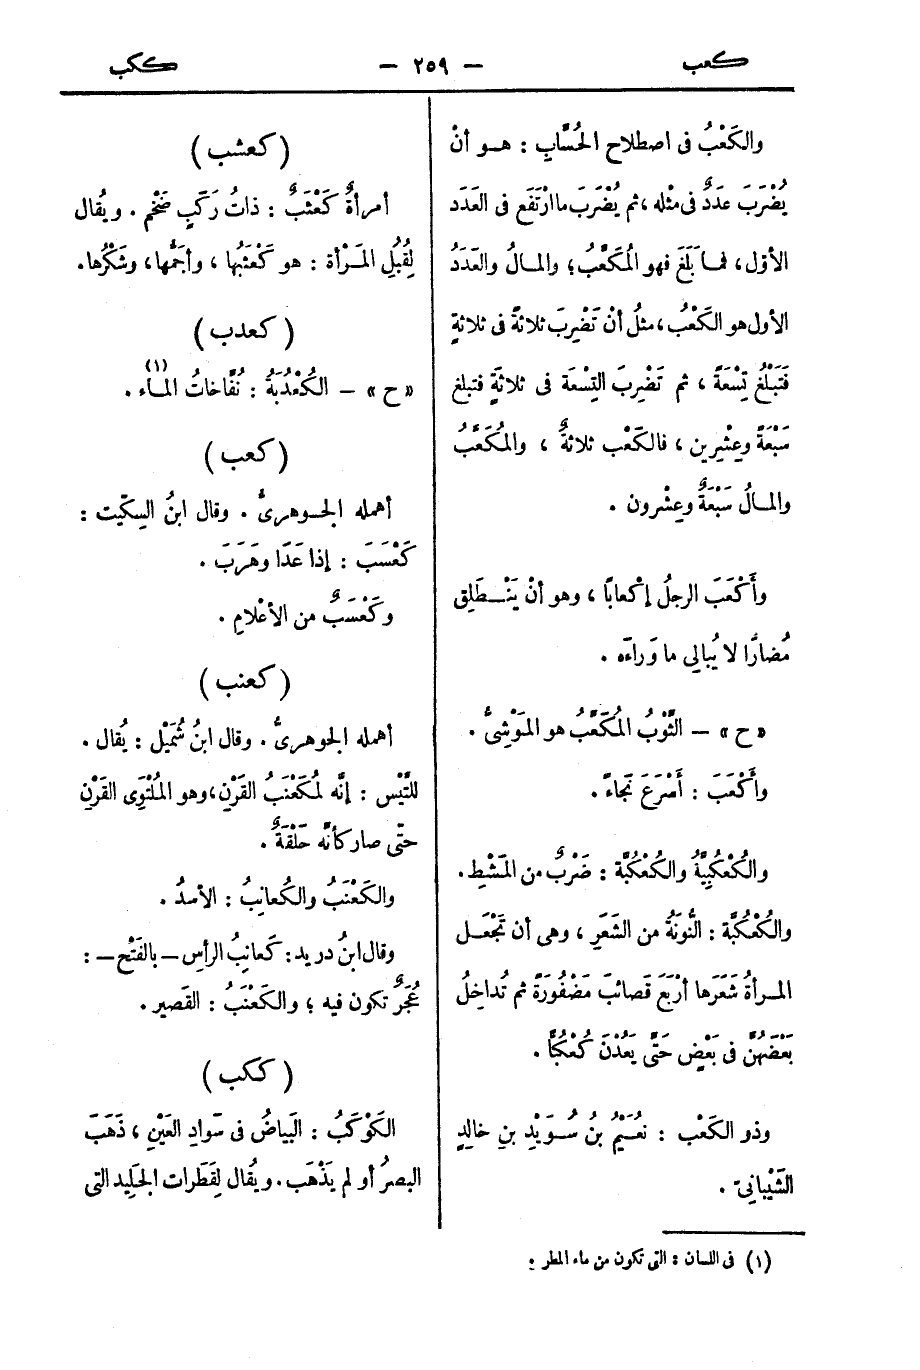 كعب
— ٢٥٩ —
ككب
والكَعْبُ فى اصطلاح الحُسَّابِ : هـو أنْ
يُضْرَبَ عَدَدٌ فى مثله ، ثم يُضْرَبَ ما ارْتَفع فى العَدَد
الأوّل ، فـما بَلَغَ فهو المُكَعَّبُ ؛ والمـالُ والعَدَدُ
الأول هو الكَعْبُ ، مثلُ أنْ تَضْرِبَ ثلاثةً فى ثلاثةٍ
فَتَبْلُغ تِسْعَةً ، ثم تَضْرِبَ التِسْعَة فى ثلاثةٍ فتبلغ
سَبْعَةً وعِشْرِين ، فالكَعْب ثلاثةٌ ، والمُكَعَّبُ
والمـالُ سَبْعَةٌ وعِشْرون .
وأَكْعَبَ الرجلُ إكْعابًا ، وهو أنْ يَنْـطَلِق
مُضارًّا لا يُبالِي ما وَراءَه .
« ح » — الثَّوْبُ المُكَعَّبُ هو المَوْشِىُّ .
وأَكْعَبَ : أَسْرَعَ نَجاءً .
والكُعْكُبِيَّةُ والكُعْكُبَّة : ضَرْبٌ من المَشْطِ .
والكُعْكُبَّة : النُّونَةُ من الشَعَرِ ، وهى أن تَجْعَـل
المـرأةُ شَعَرَها أَرْبَعَ قَصائبَ مَضْفُورَةً ثم تُداخِلُ
بَعْضَهُنَّ فى بَعْضٍ حَتَّى يَعُدْنَ كُعْكُبًّا .
وذو الكَعْب : نُعَيْمُ بنُ سُوَيْدِ بنِ خالِدٍ
الشَّيْبانِىّ .
( كعثب )
أمرأةٌ كَعْثَبٌ : ذاتُ رَكَبٍ ضَخْمٍ . ويُقال
لِقُبُلِ المَرْأة : هو كَعْثَبُها ، وأجَمُّها ، وشَكْرُها .
( كعدب )
« ح » — الكُعْدُبَةُ : نُفّاخاتُ المـاء (١) .
( كعب )
أهمله الجـوهرىُّ . وقال ابنُ السِكّيت :
كَعْسَبَ : إذا عَدَا وهَرَبَ .
وكَعْسَبٌ من الأعْلامِ .
( كعنب )
أهمله الجوهرىُّ . وقال ابنُ شُمَيْل : يُقال .
للتَّيْس : إنّه لمُكَعْنَبُ القَرْنِ ، وهو المُلْتَوِى القَرْنِ
حتّى صار كأنّه حَلْقَةٌ .
والكَعْنَبُ والكُعانِبُ : الأسدُ .
وقال ابنُ دريد : كَعانِبُ الرأسِ — بالفَتْح — :
عُجَرٌ تكون فيه ؛ والكَعْنَبُ : القَصِير .
( ككب )
الكَوْكَبُ : البَياضُ فى سَوادِ العَيْنِ ، ذَهَبَ
البصرُ أو لم يَذْهَب . ويُقال لِقَطَرات الجَلِيد التى
(١) فى اللسان : التى تكون من ماء المطر .